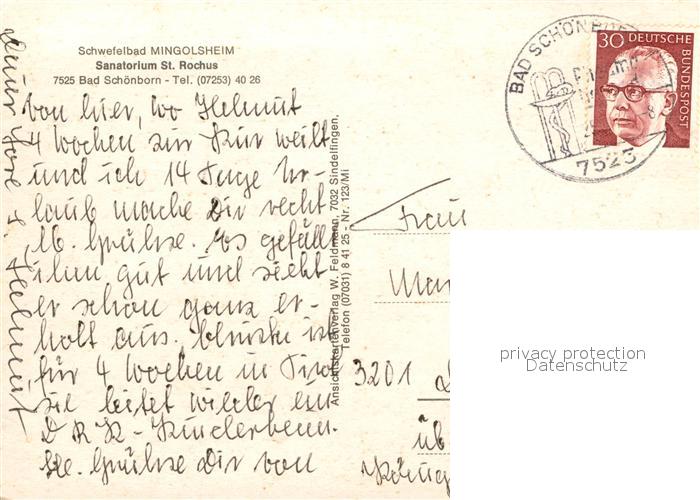 Schwefelbad MINGOLSHEIM
Sanatorium St. Rochus
7525 Bad Schönborn - Tel. (07253) 40 26
von hier, wo Helmut
4 Wochen zur Kur weilt
und ich 14 Tage Ur-
laub mache Dir recht
lb. Grüße. Es gefällt
ihm gut und sieht
er schon ganz er-
holt aus. Christa ist
für 4 Wochen in
sie leitet wieder ein
DRK-Kinder
Grüße Dir von
Helmut
Ansichtskartenverlag W. Feldmann, 7032 Sindelfingen,
Telefon (07031) 8 41 25 - Nr. 123/Mi
BAD SCHÖNBO
7525
30 DEUTSCHE
BUNDESPOST
Frau
3201
üb
privacy protection
Datenschutz